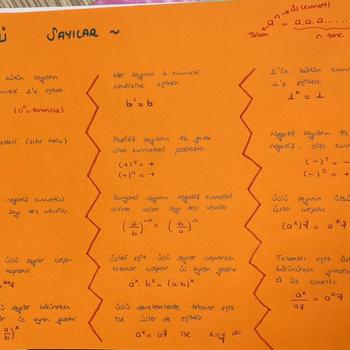 Ü SAYILAR ~
üs (kuvvet)
Taban aⁿ = a.a.a.....
n tane
bütün sayıların
1'e eşittir
(0⁰ = tanımsız)
(sıfır hariç)
negatif kuvvetleri
sayı ters çevrilir
üslü sayılar çarpı
tabanlar
x+y
üslü sayılar bölünürken
üs aynen yazılır
a/b)ˣ
Her sayının 1. kuvveti
kendisine eşittir.
b¹ = b
Pozitif sayıların tek ya da
çift kuvvetleri pozitiftir
(+)ᵀ = +
(+)ᶜ = +
Rasyonel sayının negatif kuvvetleri
alınırken verilen sayı ters çevrilir.
(a/b)⁻ⁿ = (b/a)ⁿ
üsleri eşit üslü sayılar çarpılırken
tabanlar çarpılır üs aynen yazılır.
aˣ. bˣ = (a.b)ˣ
üslü denklemlerde tabanlar eşit
ise üsler de eşittir.
aˣ = aʸ ise x=y dir.
1'in bütün kuvvet
1'e eşittir.
1ⁿ = 1
Negatif sayıların te
negatif, çift kuvvet
(-)ᵀ = -
(-)ᶜ = +
üslü sayının üssü
üsler çarpılır
(aˣ)ʸ = aˣ·ʸ
Tabanları eşit üslü
bölünürken
üs
aˣ/aʸ = aˣ⁻ʸ